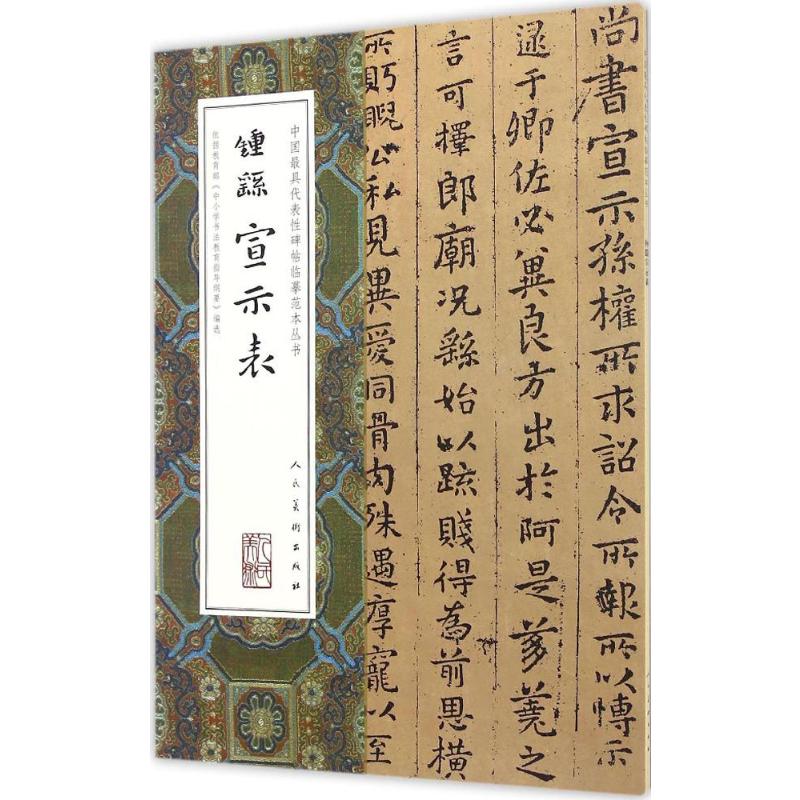 尚書宣示孫權所求詔令所報所以博示
逮于卿佐必冀良方出於阿是芻蕘之
言可擇郎廟況繇始以疏賤得為前恩橫
所眄睨公私見異愛同骨肉殊遇厚寵以至
中国最具代表性碑帖临摹范本丛书
鍾繇 宣示表
人民美術出版社
人民美術
依据教育部《中小学书法教育指导纲要》编选